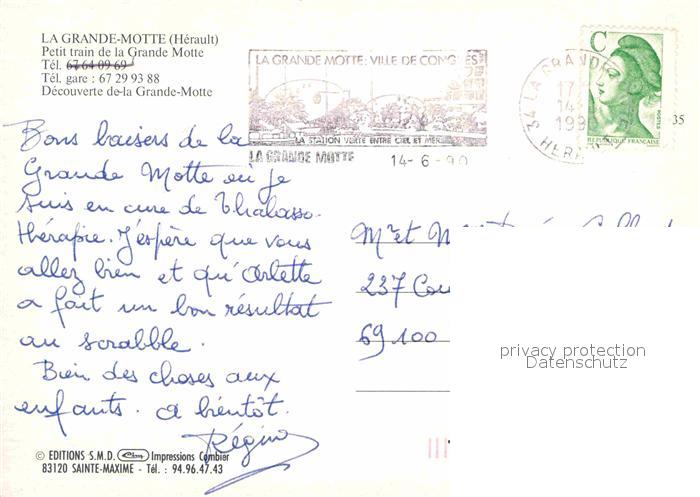 LA GRANDE-MOTTE (Hérault)
Petit train de la Grande Motte
Tél. 67 64 09 69
Tél. gare : 67 29 93 88
Découverte de-la Grande-Motte
LA GRANDE MOTTE: VILLE DE CONGRES
LA STATION VERTE ENTRE CIEL ET MER
LA GRANDE MOTTE 14-6-90
34 LA GRANDE
17
14
199
HER
C
POSTES
REPUBLIQUE FRANÇAISE
35
Bons baisers de la
Grande Motte où je
suis en cure de Thalasso-
thérapie. J'espère que vous
allez bien et qu'Arlette
a fait un bon résultat
au scrabble.
Bien des choses aux
enfants. a bientôt.
Régine
Mr et M
237 Cou
69 100
privacy protection
Datenschutz
© EDITIONS S.M.D. Cim Impressions Combier
83120 SAINTE-MAXIME - Tél. : 94.96.47.43